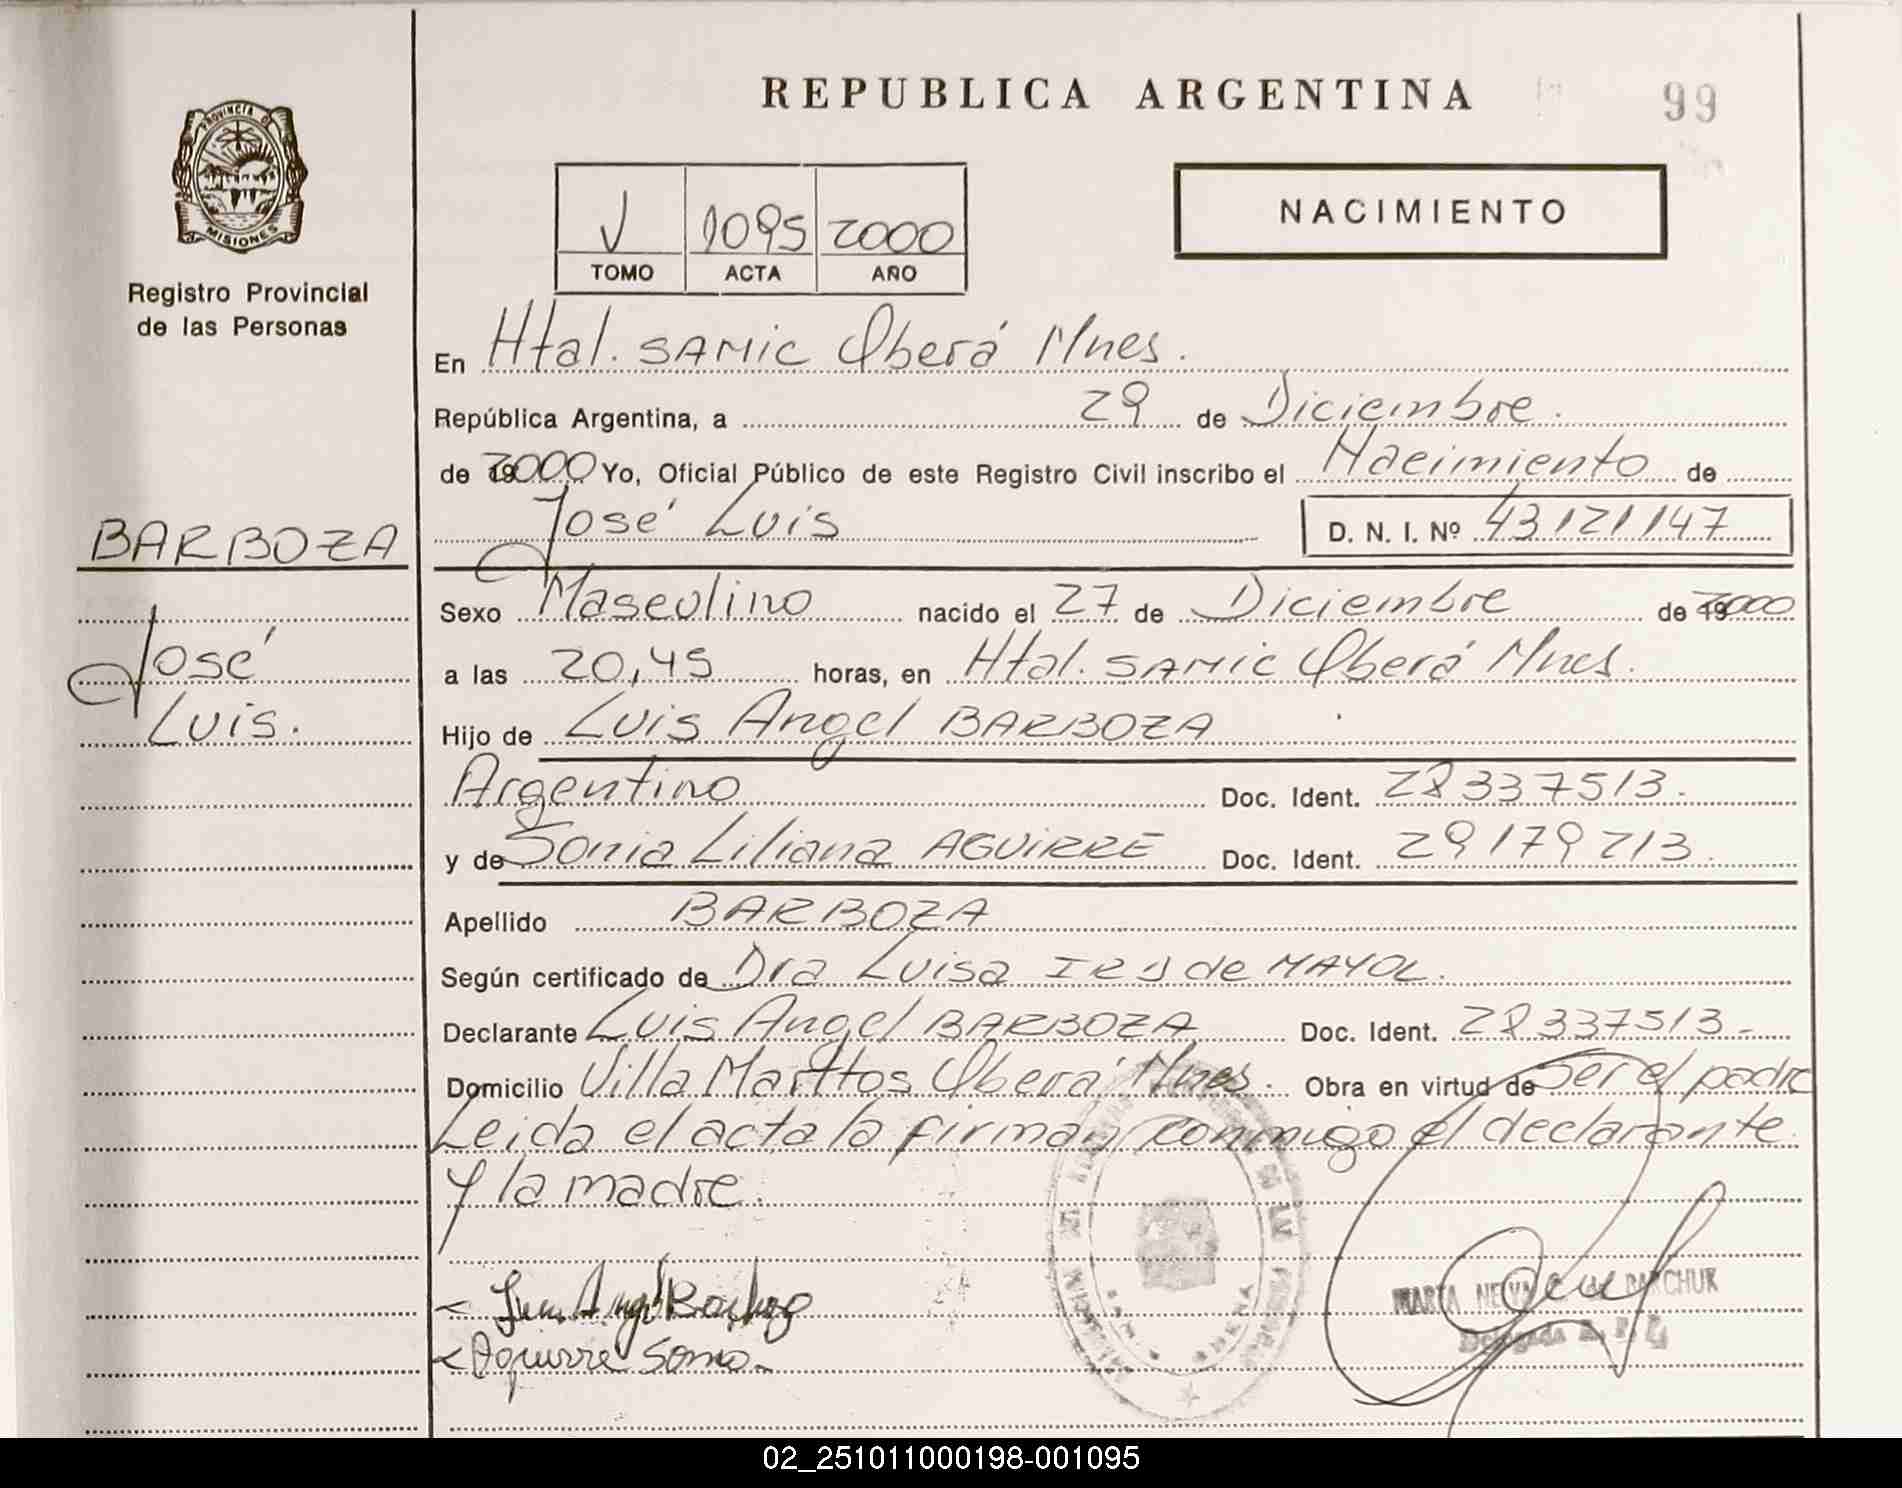 REPUBLICA ARGENTINA
99
PROVINCIA DE
MISIONES
Registro Provincial
de las Personas
V 1095 2000
TOMO ACTA AÑO
NACIMIENTO
En Htal. SAMIC Oberá Mnes.
República Argentina, a 29 de Diciembre.
de 2000 Yo, Oficial Público de este Registro Civil inscribo el Nacimiento de
José Luis D. N. I. Nº 43121147
BARBOZA
José
Luis.
Sexo Masculino nacido el 27 de Diciembre de 2000
a las 20,45 horas, en Htal. SAMIC Oberá Mnes.
Hijo de Luis Angel BARBOZA
Argentino Doc. Ident. 28337513.
y de Sonia Liliana AGUIRRE Doc. Ident. 29179213.
Apellido BARBOZA
Según certificado de Dra Luisa de MAYOL.
Declarante Luis Angel BARBOZA Doc. Ident. 28337513-
Domicilio Villa Oberá Mnes. Obra en virtud de Ser el padre
Leida el acta la firman conmigo el declarante
y la madre.
Luis Angel Barboza
Aguirre Sonia
MARTA
Delegada R. P.
02_251011000198-001095